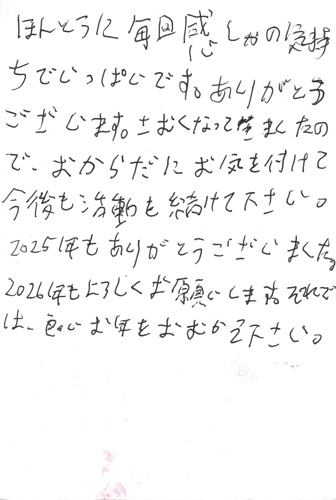 ほんとうに毎回感しゃの気持
ちでいっぱいです。ありがとう
ございます。さむくなって来ましたの
で、おからだにお気を付けて
今後も活動を続けて下さい。
2025年もありがとうございました。
2026年もよろしくお願いします。それで
は、良いお年をおむかえ下さい。